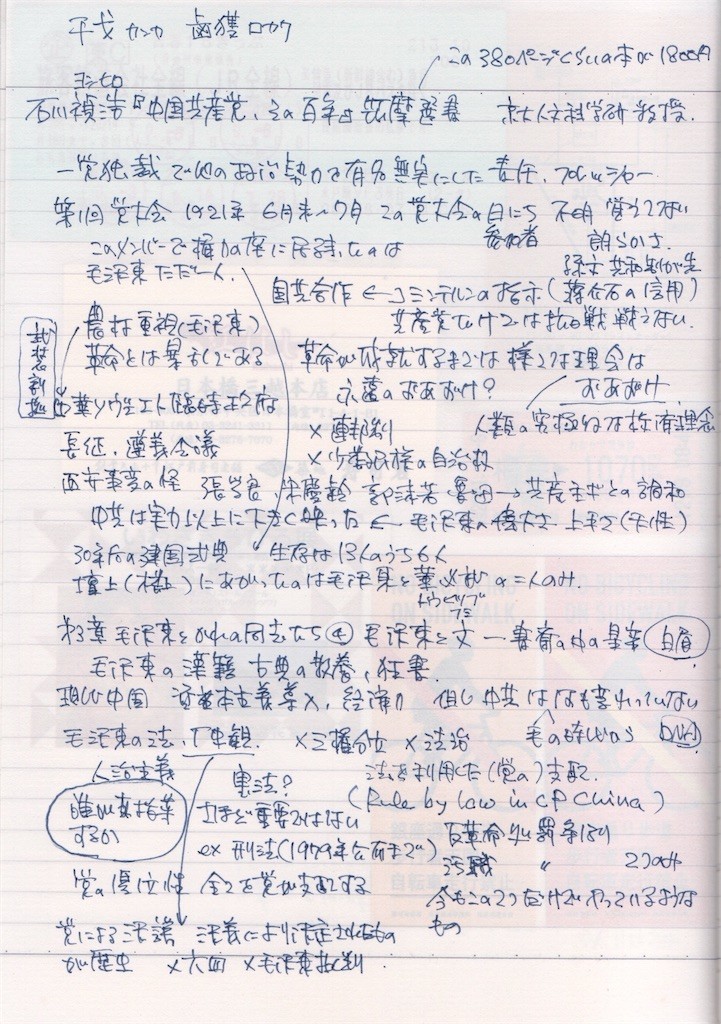 干戈 カンカ 鹵獲 ロカク
この380ページぐらいの本が1800円
ヨシヒロ
石川禎浩『中国共産党、その百年』筑摩選書 京大人文科学研教授.
一党独裁で他の政治勢力を有名無実にした責任、プレッシャー
第1回党大会 1921年 6月末〜7月 この党大会の日にち 不明 覚えてない
参加者 朗らかさ
このメンバーで権力の座に居続けたのは
毛沢東ただ一人.
国共合作 ← コミンテルンの指示(蒋介石の信用)
共産党だけでは抗日戦戦えない.
農村重視(毛沢東)
革命とは暴力である
武装割拠
革命が成就するまでは 様々な理念は
永遠のおあずけ? おあずけ
中華ソヴィエト臨時政府
×連邦制
人類の究極的な 理念
長征、遵義会議
×少数民族の自治权
西安事変の怪 張学良 宋慶齢 郭沫若 魯迅 → 共産主义との調和
中共は実力以上に大きく映った ← 毛沢東の偉大さ
30年后の建国式典 生存は13人のうち6人
壇上(楼上)にあがったのは毛沢東と董必武の二人のみ.
トウヒツブ
毛沢東とかれの同志たち④ 毛沢東と文 ー 書斎の中の皇帝 白眉
毛沢東の漢籍 古典の教養、狂書.
現代中国 資本主義導入、経済力 但し中共は何も変わっていない
毛の時代から DNA
毛沢東の法、歴史観. ×三権分立 ×法治
人治主義 憲法? 法を利用した(党の)支配.
(Rule by law in CP China)
誰が指導するか
さほど重要ではない
ex 刑法(1979年公布まで) 反革命処罰条例
汚職 〃 2つのみ
党の優位性 全てを党が支配する
今もこの2つだけでやっているようなもの
党による決議 決議により決定されたもの
が歴史 ×六四 ×毛沢東批判